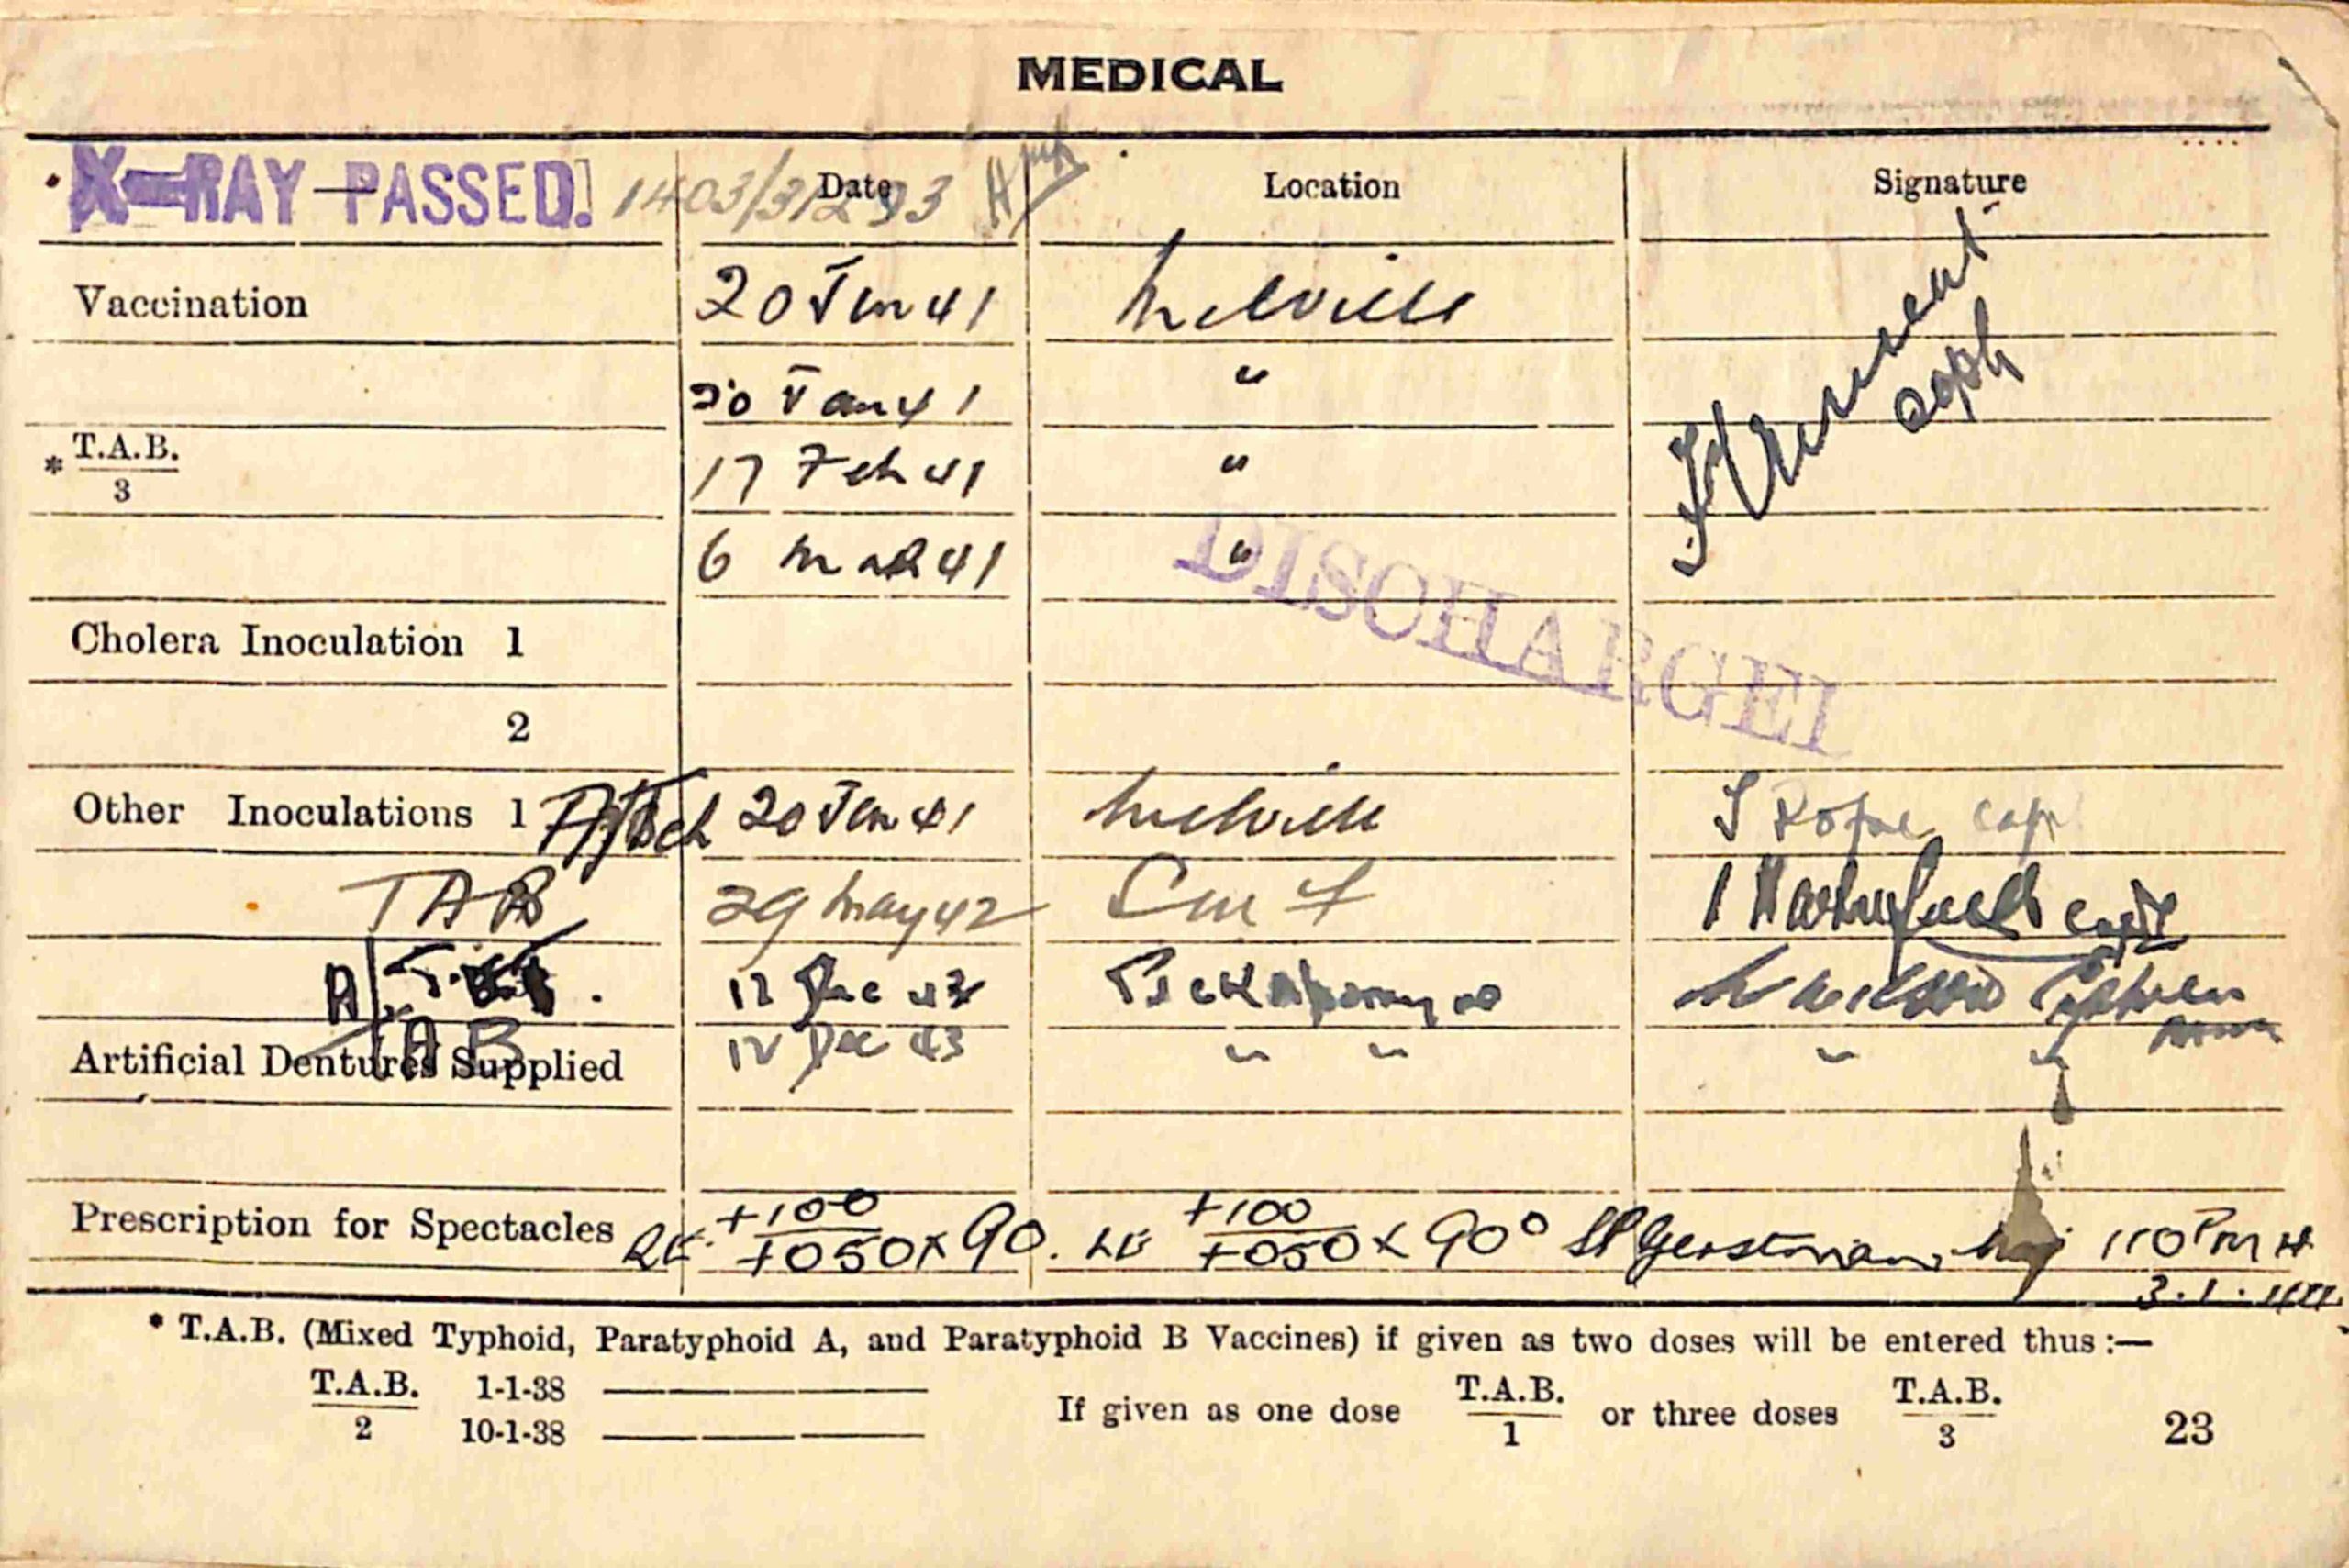 MEDICAL
X-RAY PASSED. Date Location Signature
Vaccination 20 Jan 41 Melville
20 Jan 41 "
* T.A.B. 17 Feb 41 "
3
6 Mar 41 "
DISCHARGED
Cholera Inoculation 1
2
Other Inoculations 1 20 Jan 41 Melville
TAB 29 May 42 Capt
12 Dec 43
TAB
Artificial Dentures Supplied 12 Dec 43 " " " "
+100 +100
Prescription for Spectacles RE +050 x 90. LE +050 x 90° Gerstman Maj 110 PMH
3.1.44
* T.A.B. (Mixed Typhoid, Paratyphoid A, and Paratyphoid B Vaccines) if given as two doses will be entered thus :—
T.A.B. 1-1-38
2 10-1-38
If given as one dose T.A.B. or three doses T.A.B.
1 3
23